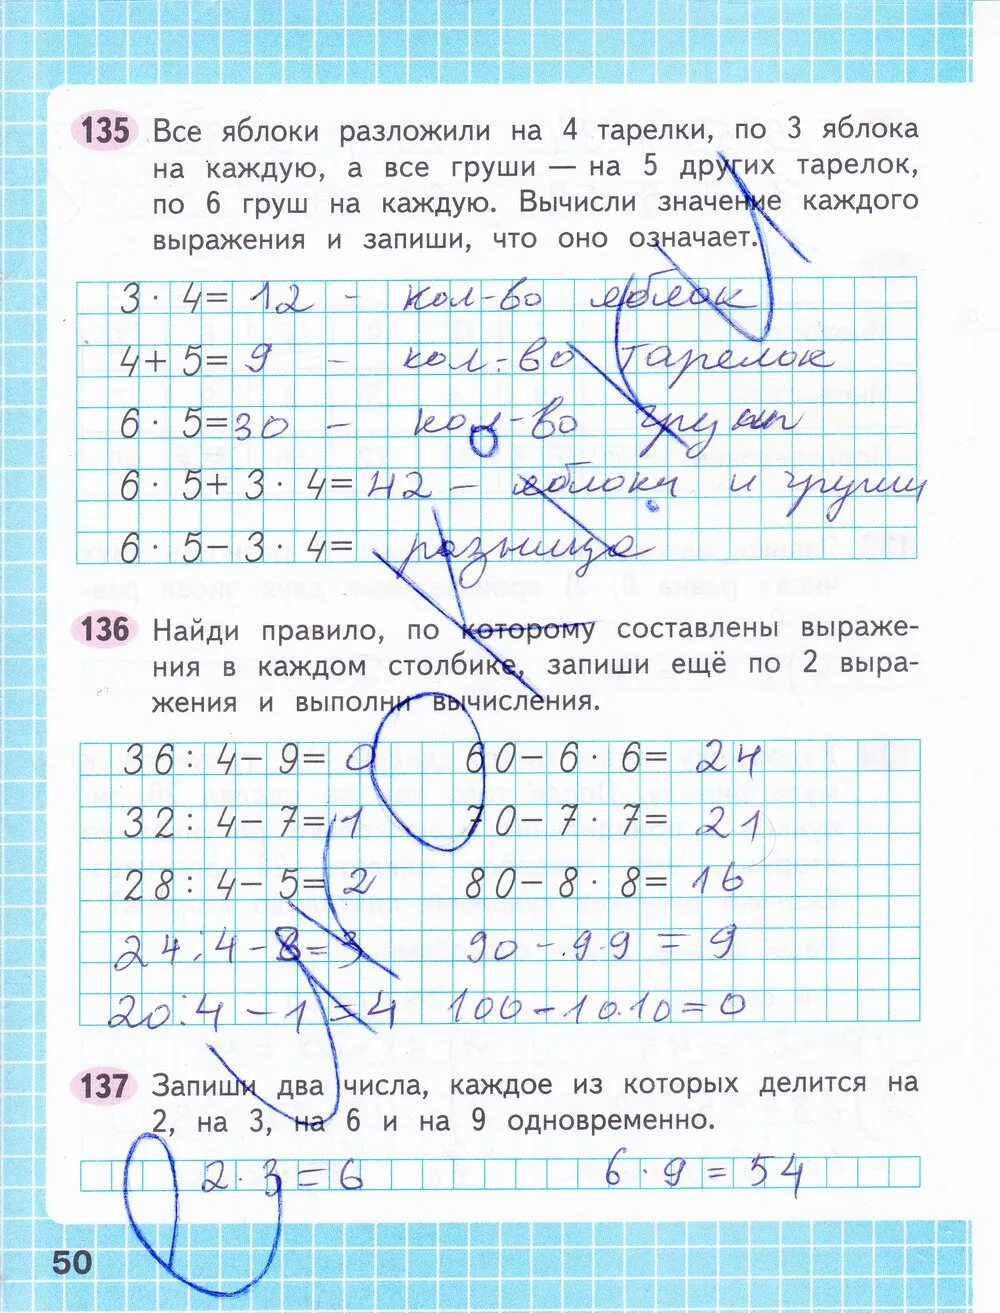 135 Все яблоки разложили на 4 тарелки, по 3 яблока
на каждую, а все груши — на 5 других тарелок,
по 6 груш на каждую. Вычисли значение каждого
выражения и запиши, что оно означает.
3 · 4= 12 - кол-во яблок
4+ 5= 9 - кол-во тарелок
6 · 5=30 - кол-во груш
6 · 5+ 3 · 4= 42 - яблоки и груши
6 · 5- 3 · 4= разница
136 Найди правило, по которому составлены выраже-
ния в каждом столбике, запиши ещё по 2 выра-
жения и выполни вычисления.
36: 4- 9= 0 60- 6 · 6= 24
32: 4- 7= 1 70- 7 · 7= 21
28: 4- 5= 2 80- 8 · 8= 16
24:4 - 3= 3 90 - 9·9 = 9
20:4 - 1 = 4 100 - 10·10 = 0
137 Запиши два числа, каждое из которых делится на
2, на 3, на 6 и на 9 одновременно.
2 · 3 = 6 6 · 9 = 54
50